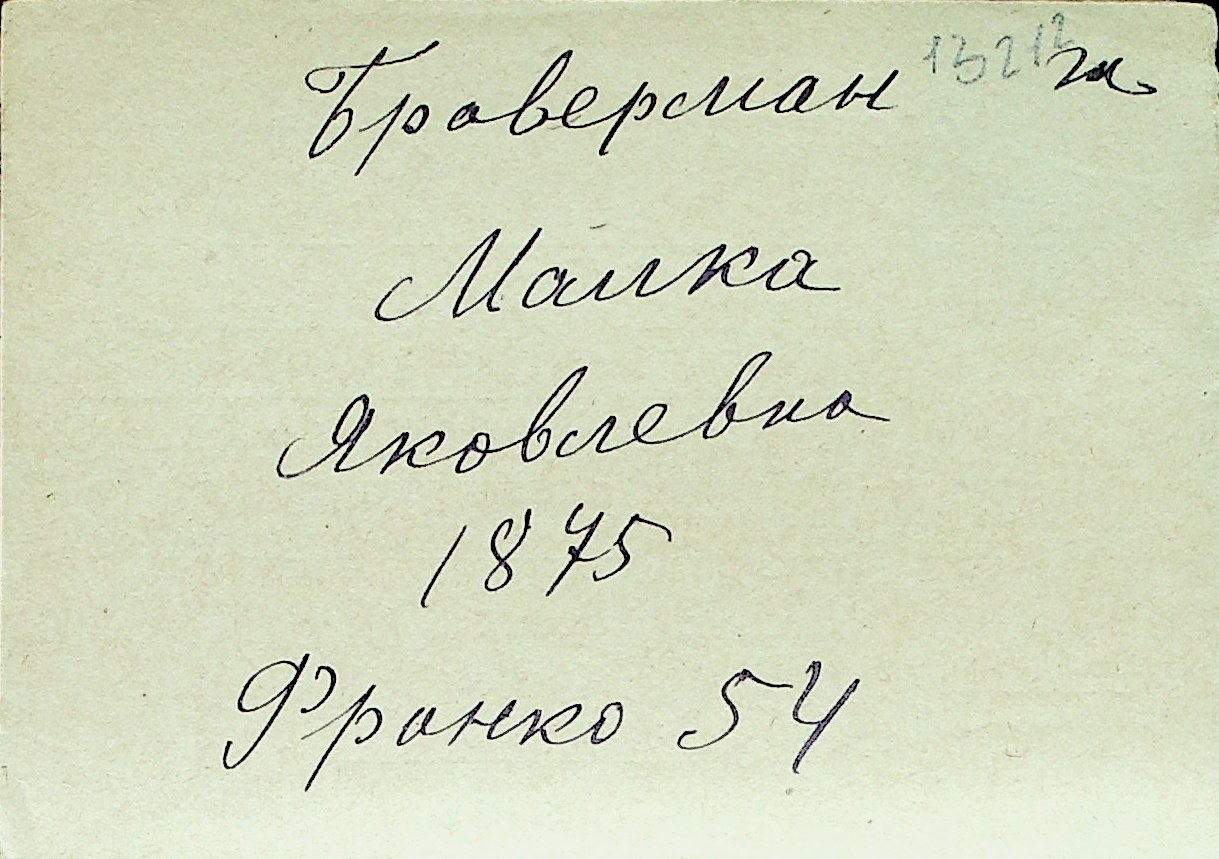 Броверман
Малка
Яковлевна
1875
Франко 54